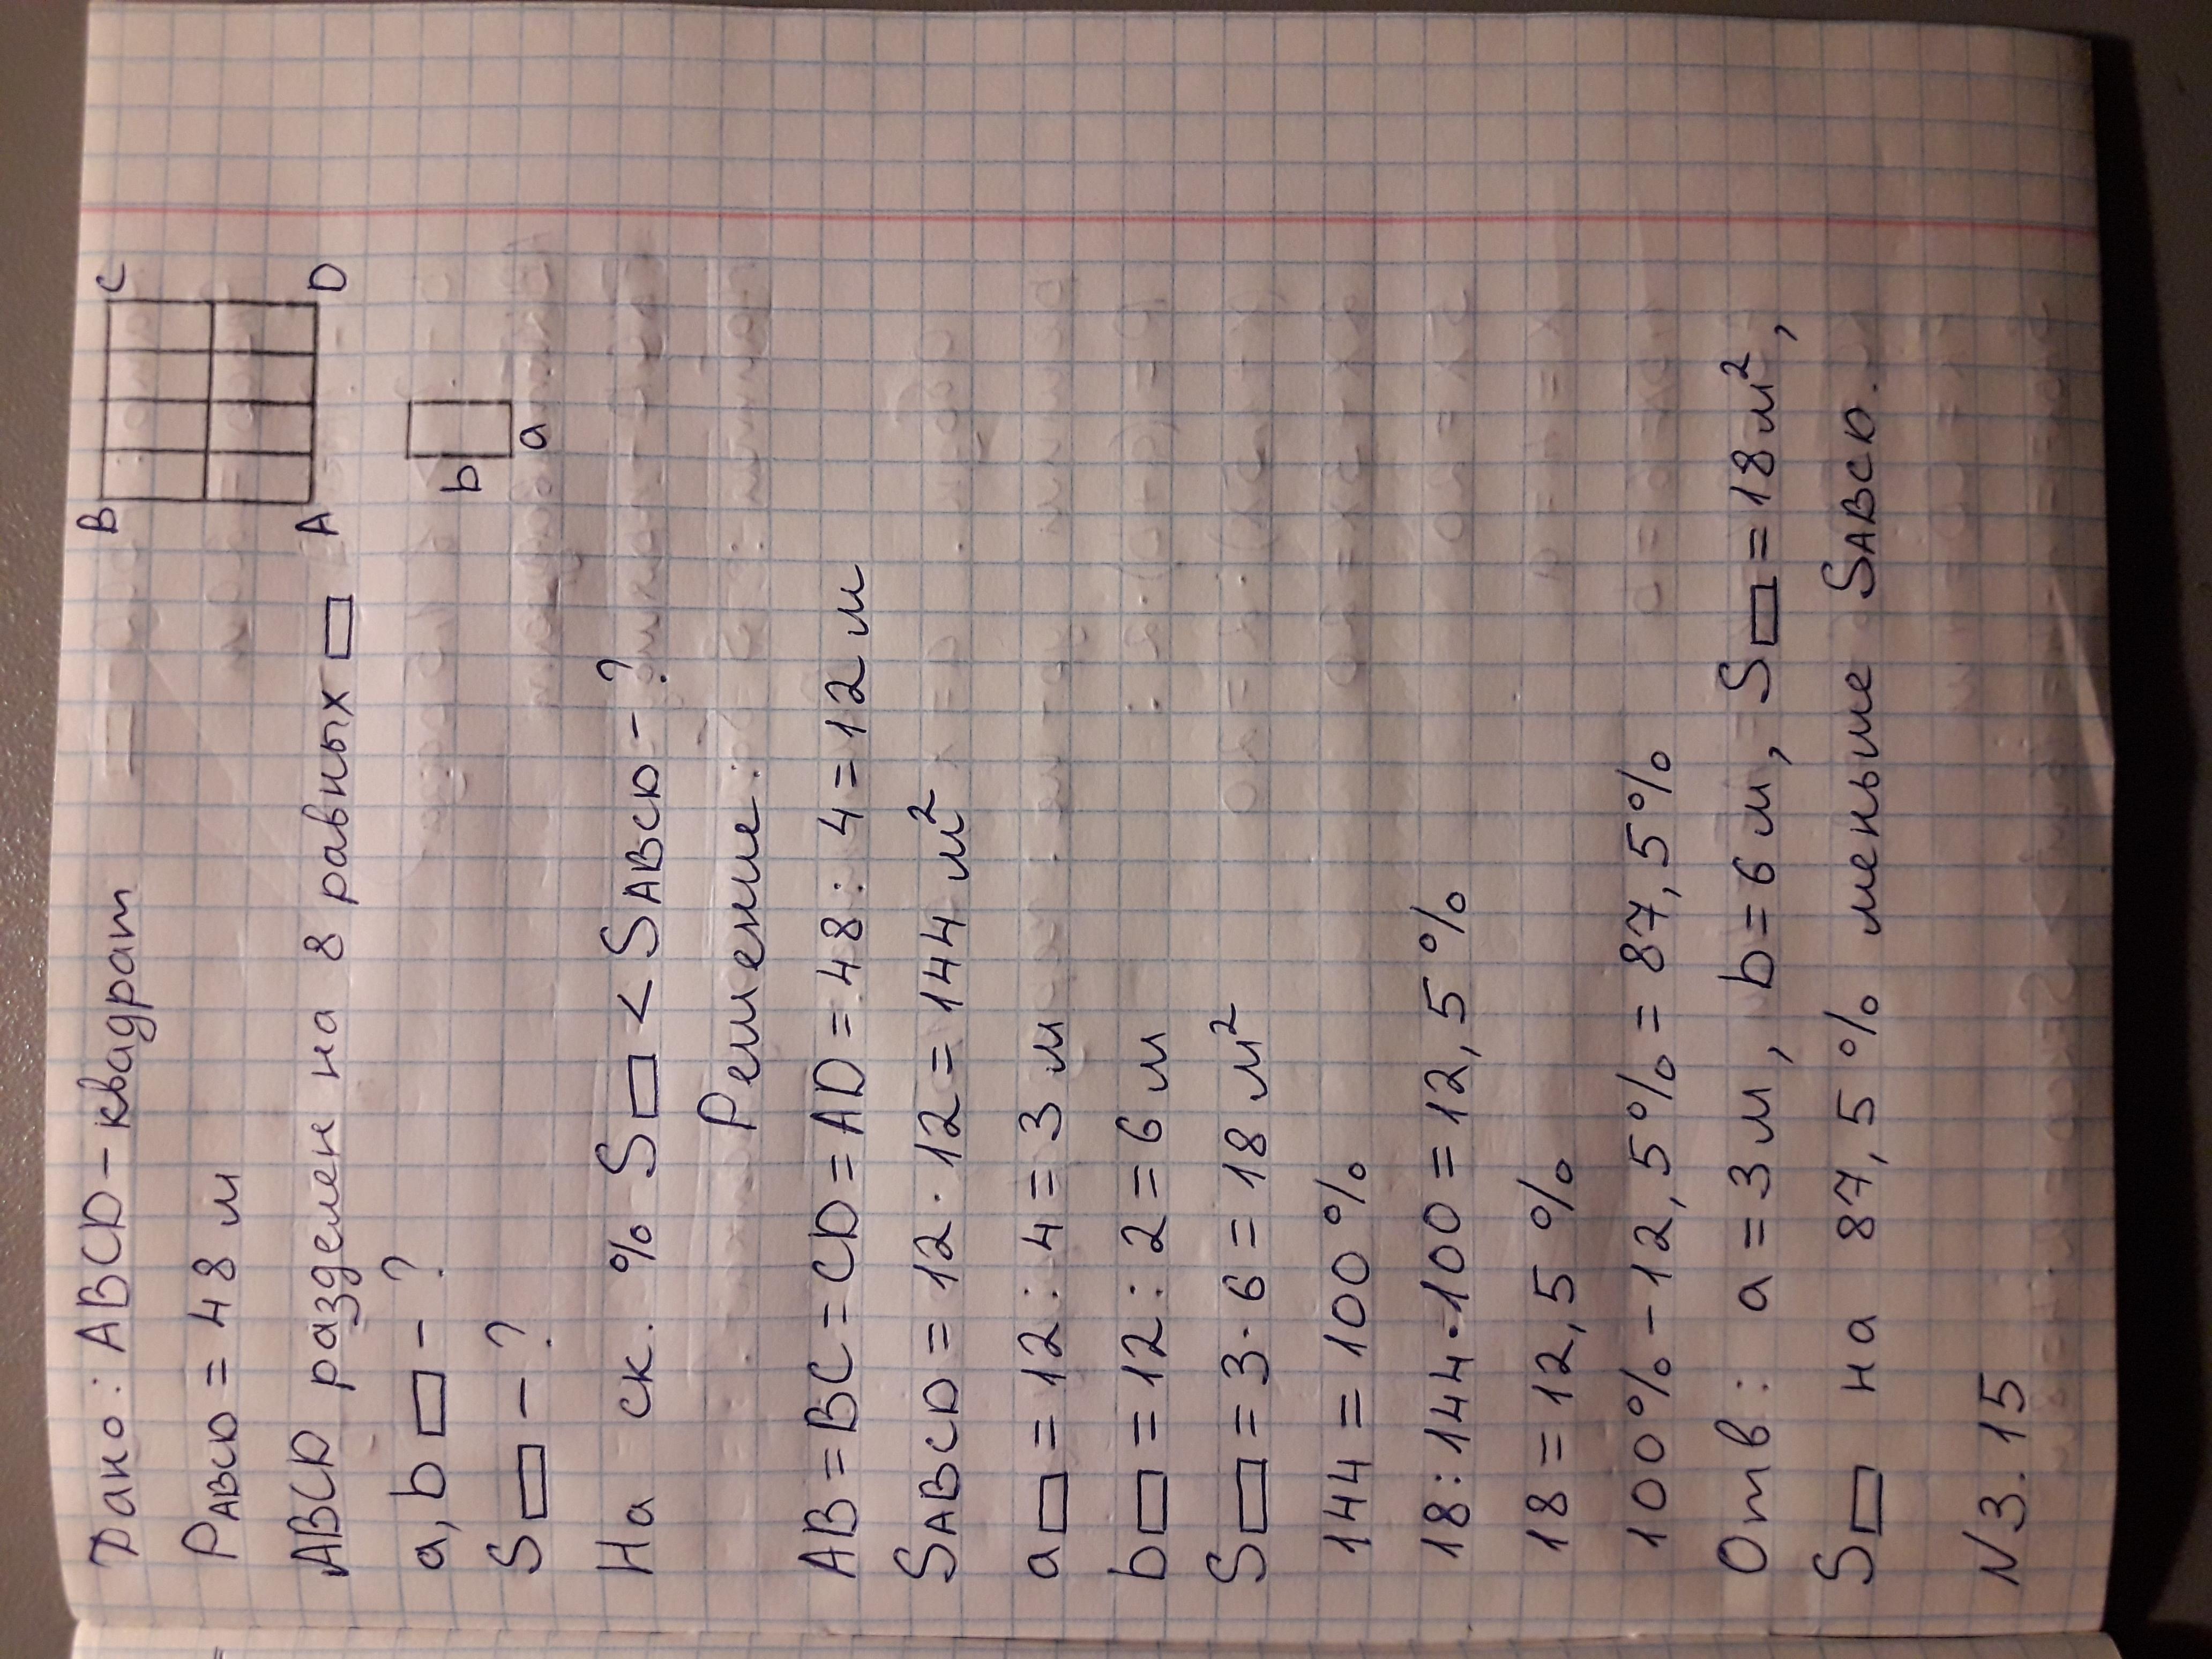 Дано: ABCD – квадрат
B C
PABCD = 48 м
ABCD разделен на 8 равных ▭
A D
a, b ▭ – ?
b
S▭ – ?
a
На ск. % S▭ < SABCD – ?
Решение:
AB = BC = CD = AD = 48 : 4 = 12 м
SABCD = 12 · 12 = 144 м²
a▭ = 12 : 4 = 3 м
b▭ = 12 : 2 = 6 м
S▭ = 3 · 6 = 18 м²
144 = 100 %
18 : 144 · 100 = 12,5 %
18 = 12,5 %
100% – 12,5% = 87,5%
Отв: a = 3 м, b = 6 м, S▭ = 18 м²,
S▭ на 87,5 % меньше SABCD.
N 3.15